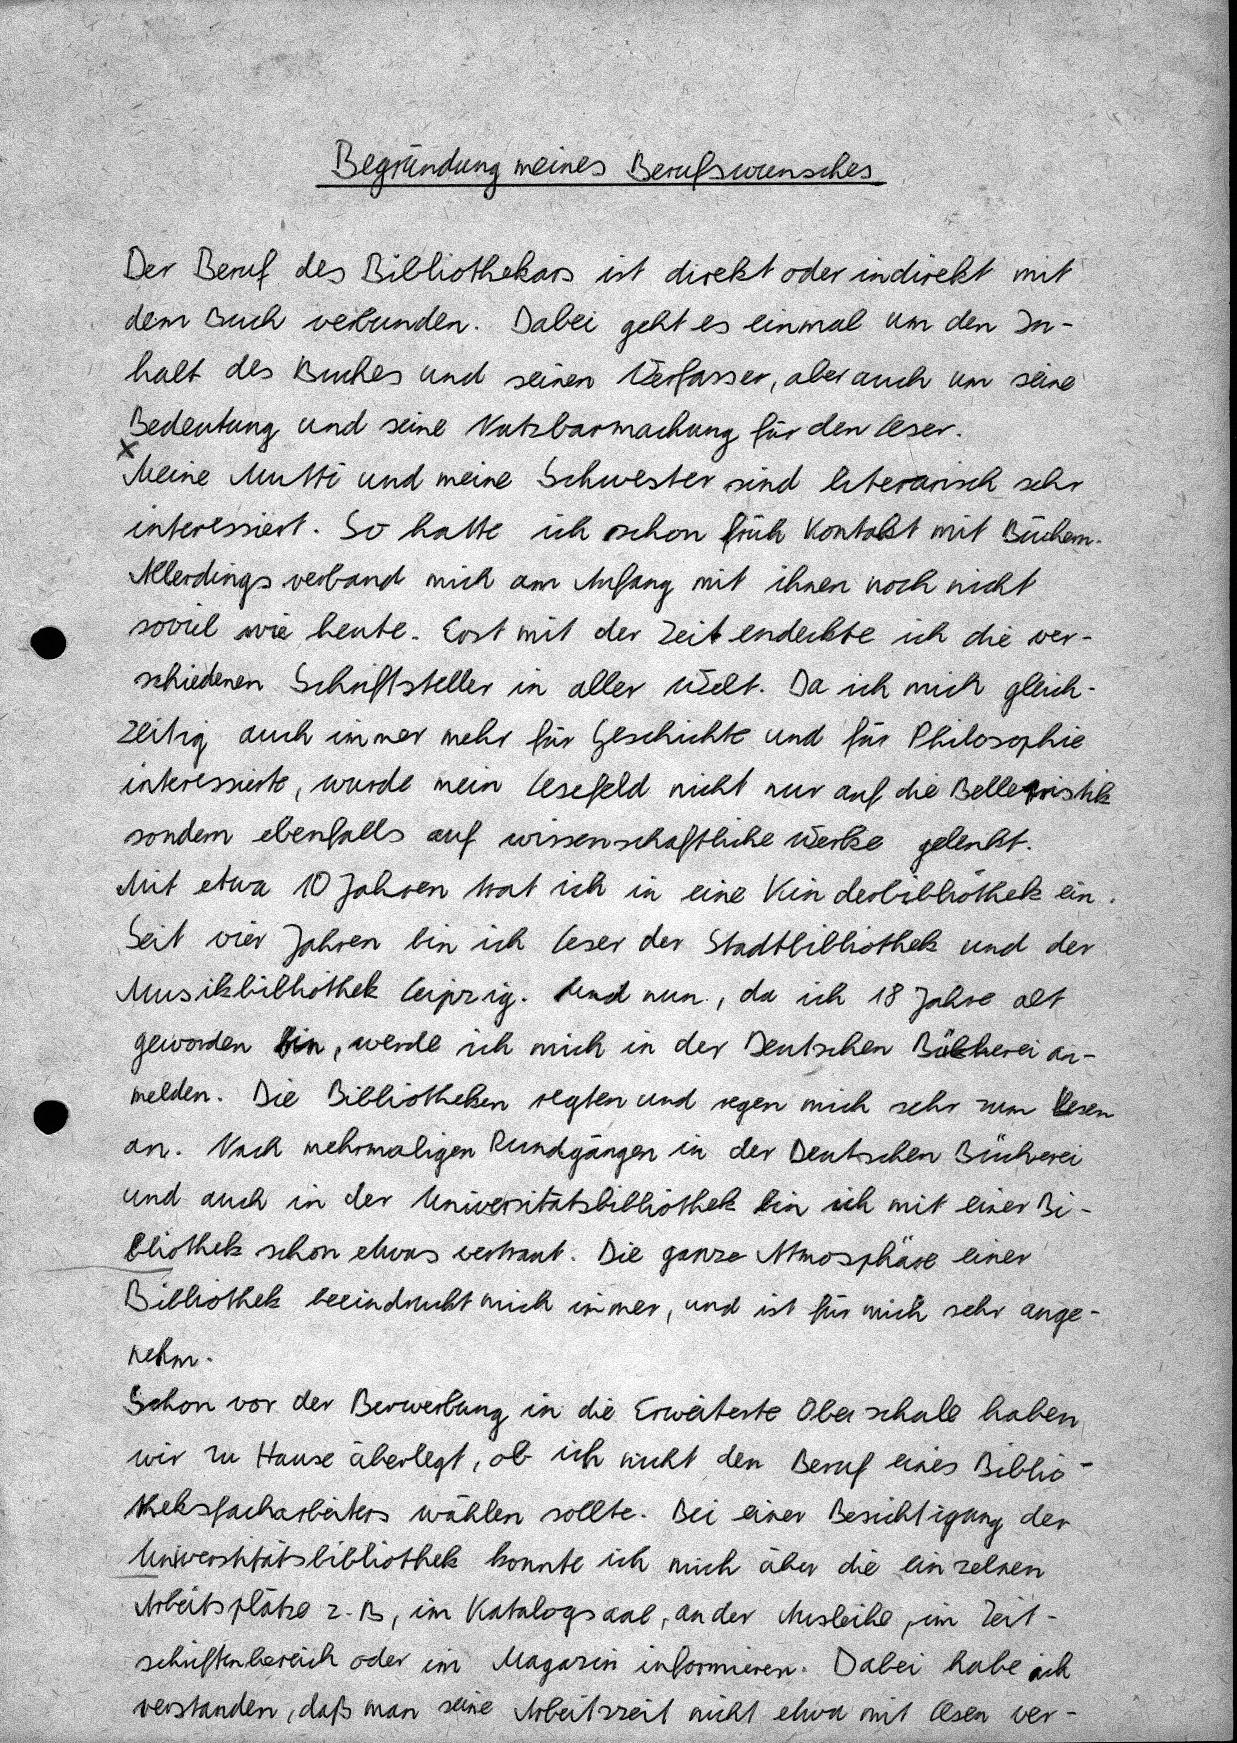 Begründung meines Berufswunsches
Der Beruf des Bibliothekars ist direkt oder indirekt mit
dem Buch verbunden. Dabei geht es einmal um den In-
halt des Buches und seinen Verfasser, aber auch um seine
Bedeutung und seine Nutzbarmachung für den Leser.
x
Meine Mutti und meine Schwester sind literarisch sehr
interessiert. So hatte ich schon früh Kontakt mit Büchern.
Allerdings verband mich am Anfang mit ihnen noch nicht
soviel wie heute. Erst mit der Zeit endeckte ich die ver-
schiedenen Schriftsteller in aller Welt. Da ich mich gleich-
zeitig auch immer mehr für Geschichte und für Philosophie
interessierte, wurde mein Lesefeld nicht nur auf die Belletristik
sondern ebenfalls auf wissenschaftliche Werke gelenkt.
Mit etwa 10 Jahren trat ich in eine Kinderbibliothek ein.
Seit vier Jahren bin ich Leser der Stadtbibliothek und der
Musikbibliothek Leipzig. Und nun, da ich 18 Jahre alt
geworden bin, werde ich mich in der Deutschen Bücherei an-
melden. Die Bibliotheken regten und regen mich sehr zum Lesen
an. Nach mehrmaligen Rundgängen in der Deutschen Bücherei
und auch in der Universitätsbibliothek bin ich mit einer Bi-
bliothek schon etwas vertraut. Die ganze Atmosphäre einer
Bibliothek beeindruckt mich immer, und ist für mich sehr ange-
nehm.
Schon vor der Berwerbung in die Erweiterte Oberschule haben
wir zu Hause überlegt, ob ich nicht den Beruf eines Biblio-
theksfacharbeiters wählen sollte. Bei einer Besichtigung der
Universitätsbibliothek konnte ich mich über die einzelnen
Arbeitsplätze z.B, im Katalogsaal, an der Ausleihe, im Zeit-
schriftenbereich oder im Magazin informieren. Dabei habe ich
verstanden, daß man seine Arbeitszeit nicht etwa mit Lesen ver-